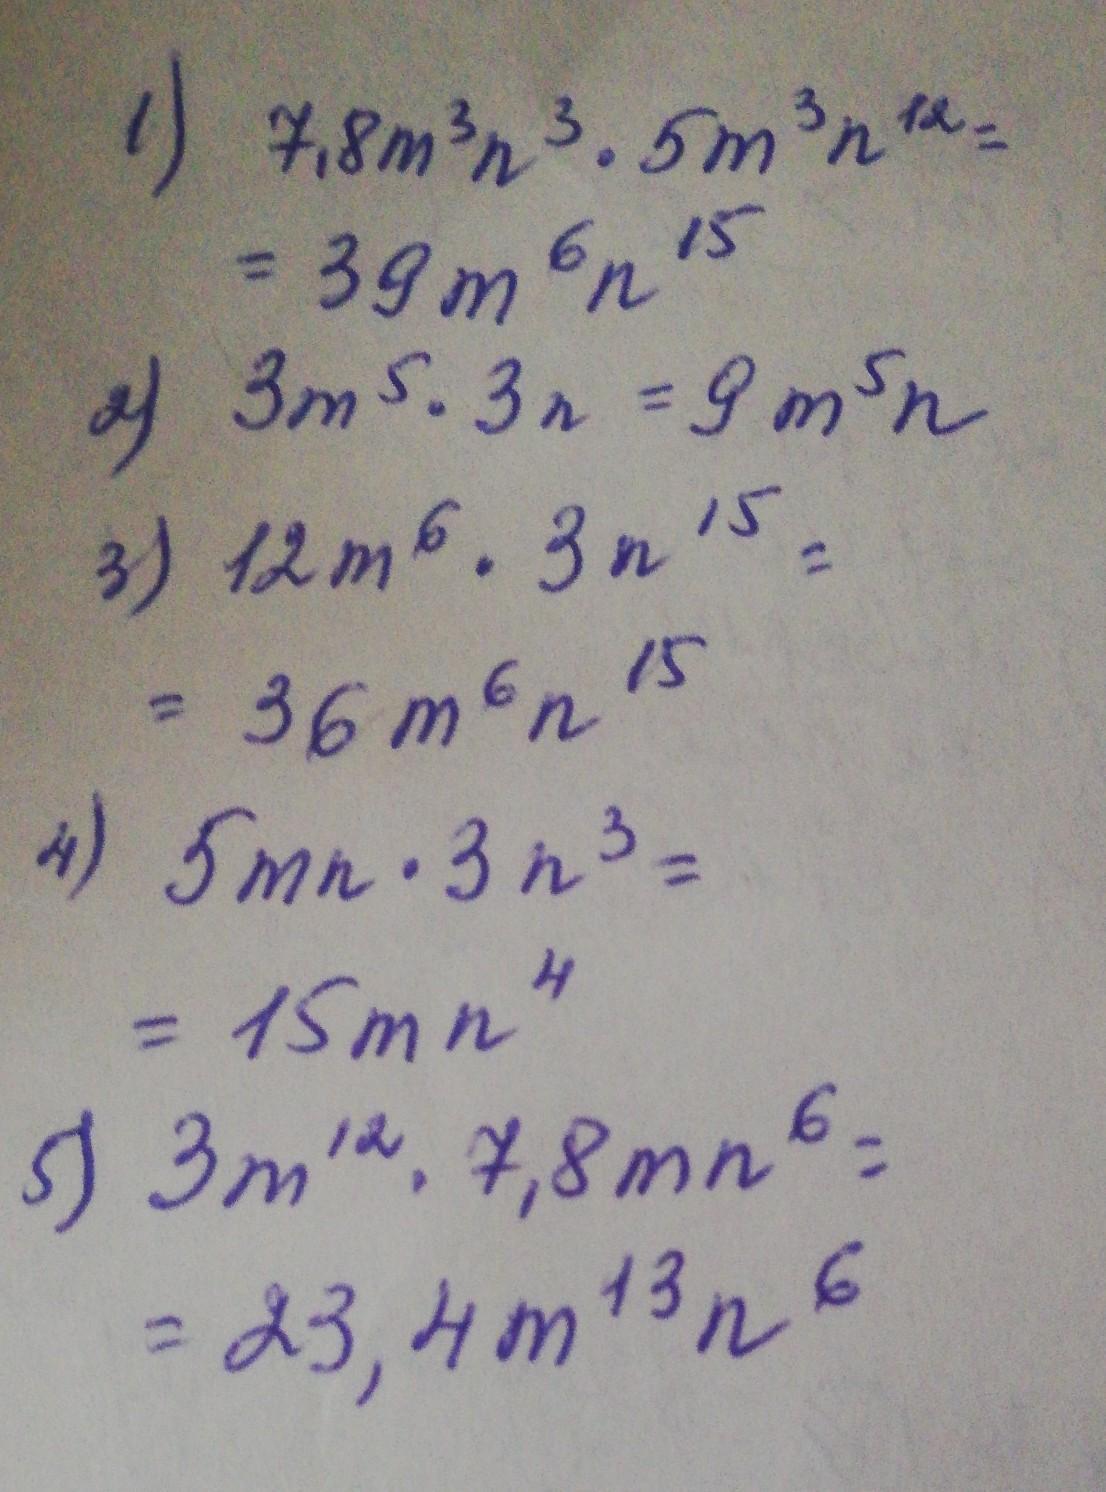 1) 7,8m³n³ · 5m³n¹² =
= 39m⁶n¹⁵
2) 3m⁵ · 3n = 9m⁵n
3) 12m⁶ · 3n¹⁵ =
= 36m⁶n¹⁵
4) 5mn · 3n³ =
= 15mn⁴
5) 3m¹² · 7,8mn⁶ =
= 23,4m¹³n⁶